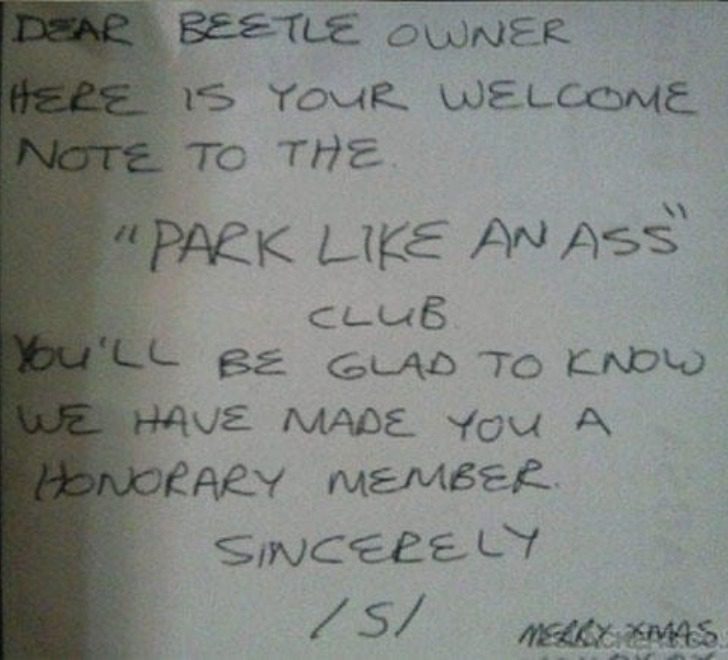 DEAR BEETLE OWNER
HERE IS YOUR WELCOME
NOTE TO THE
"PARK LIKE AN ASS"
CLUB
YOU'LL BE GLAD TO KNOW
WE HAVE MADE YOU A
HONORARY MEMBER.
SINCERELY
/S/
MERRY XMAS